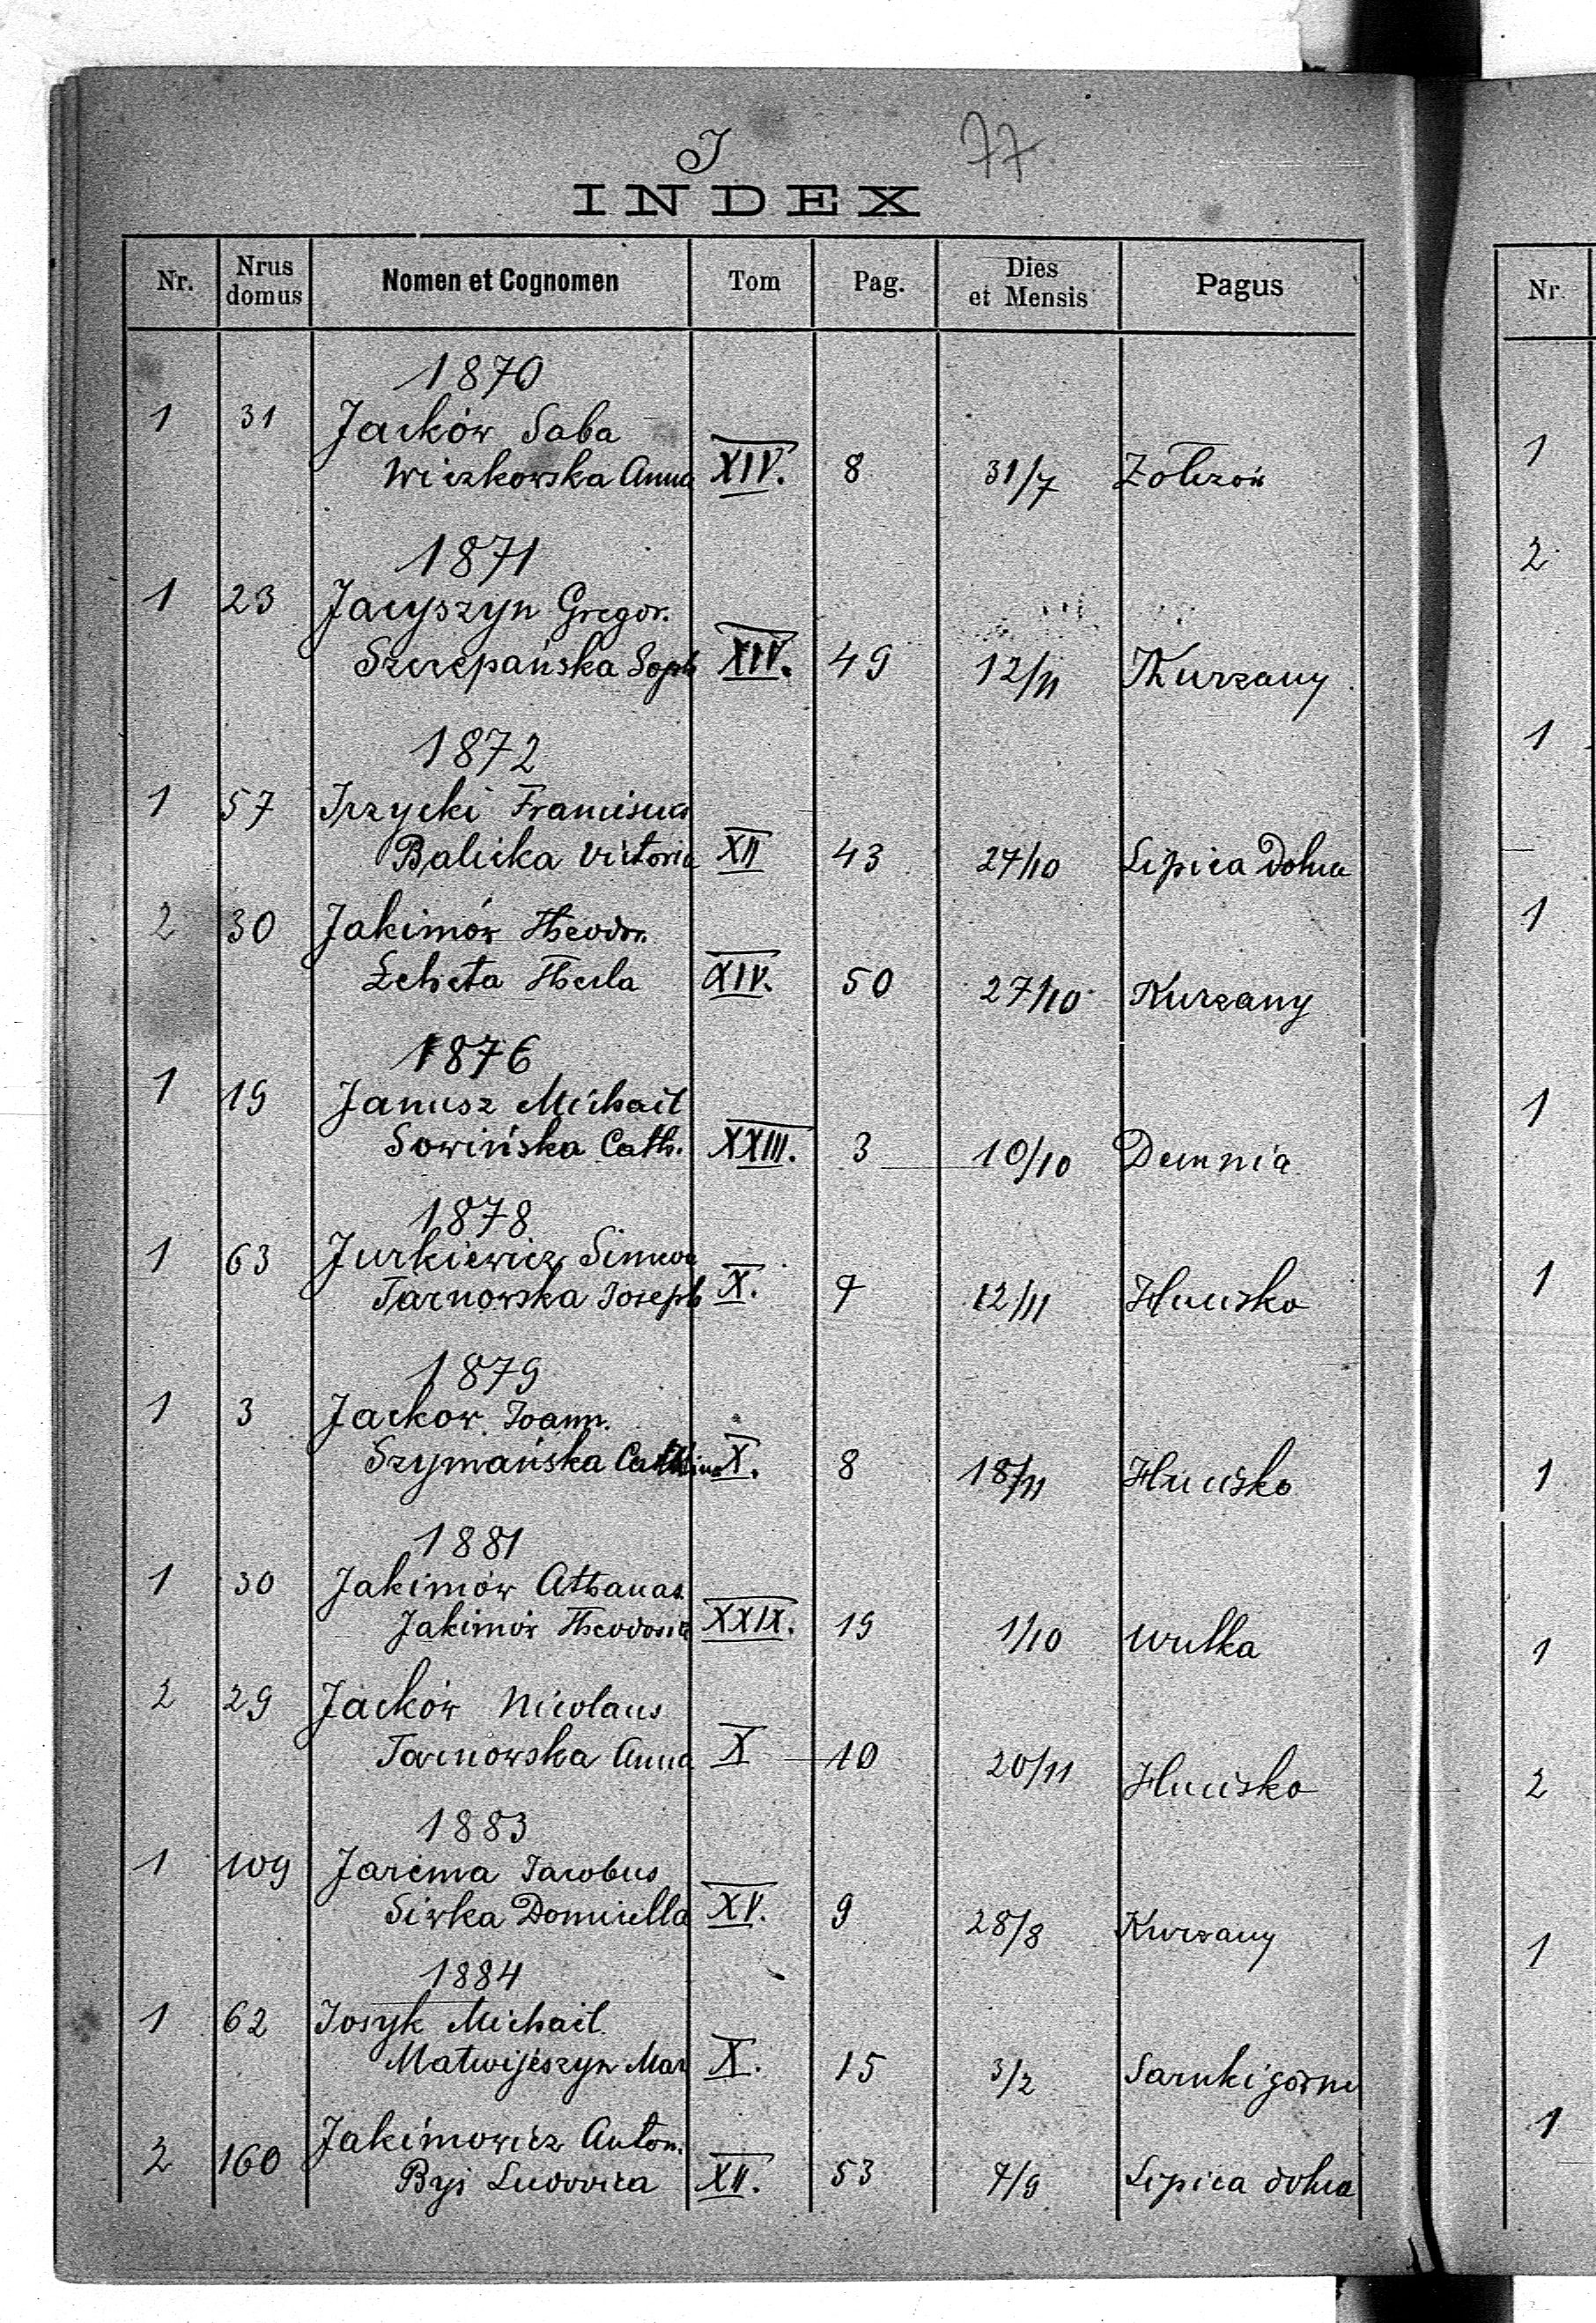 J 77
INDEX
Nr. Nrus domus Nomen et Cognomen Tom Pag. Dies et Mensis Pagus Nr.
1870
1 31 Jacków Saba
Wiczkowska Anna XIV. 8 31/7 Żołczów 1
1871 2
1 23 Jacyszyn Gregor.
Szczepańska Soph XIV. 49 12/11 Kurzany
1872 1
1 57 Irzycki Franciscus
Balicka Victoria XII 43 27/10 Lipica Dolna
2 30 Jakimów Theodor. 1
Leheta Thecla XIV. 50 27/10 Kurzany
1876
1 19 Janusz Michael 1
Sowińska Cath. XXIII. 3 10/10 Demnia
1878
1 63 Jurkiewicz Simeon
Tarnowska Joseph X. 7 12/11 Hucisko 1
1879
1 3 Jackow Joann.
Szymańska X. 8 18/11 Hucisko 1
1881
1 30 Jakimów Athanas.
Jakimów Theodosia XXIX. 19 1/10 Wulka 1
2 29 Jacków Nicolaus
Tarnowska Anna X 10 20/11 Hucisko 2
1883
1 109 Jarema Jacobus
Siwka Domicella XV. 9 28/8 Kurzany 1
1884
1 62 Josyk Michael
Matwijeszyn Mar X. 15 3/2 Sarnki górne
2 160 Jakimowicz Anton. 1
Byś Ludovica XII. 53 7/9 Lipica dolna